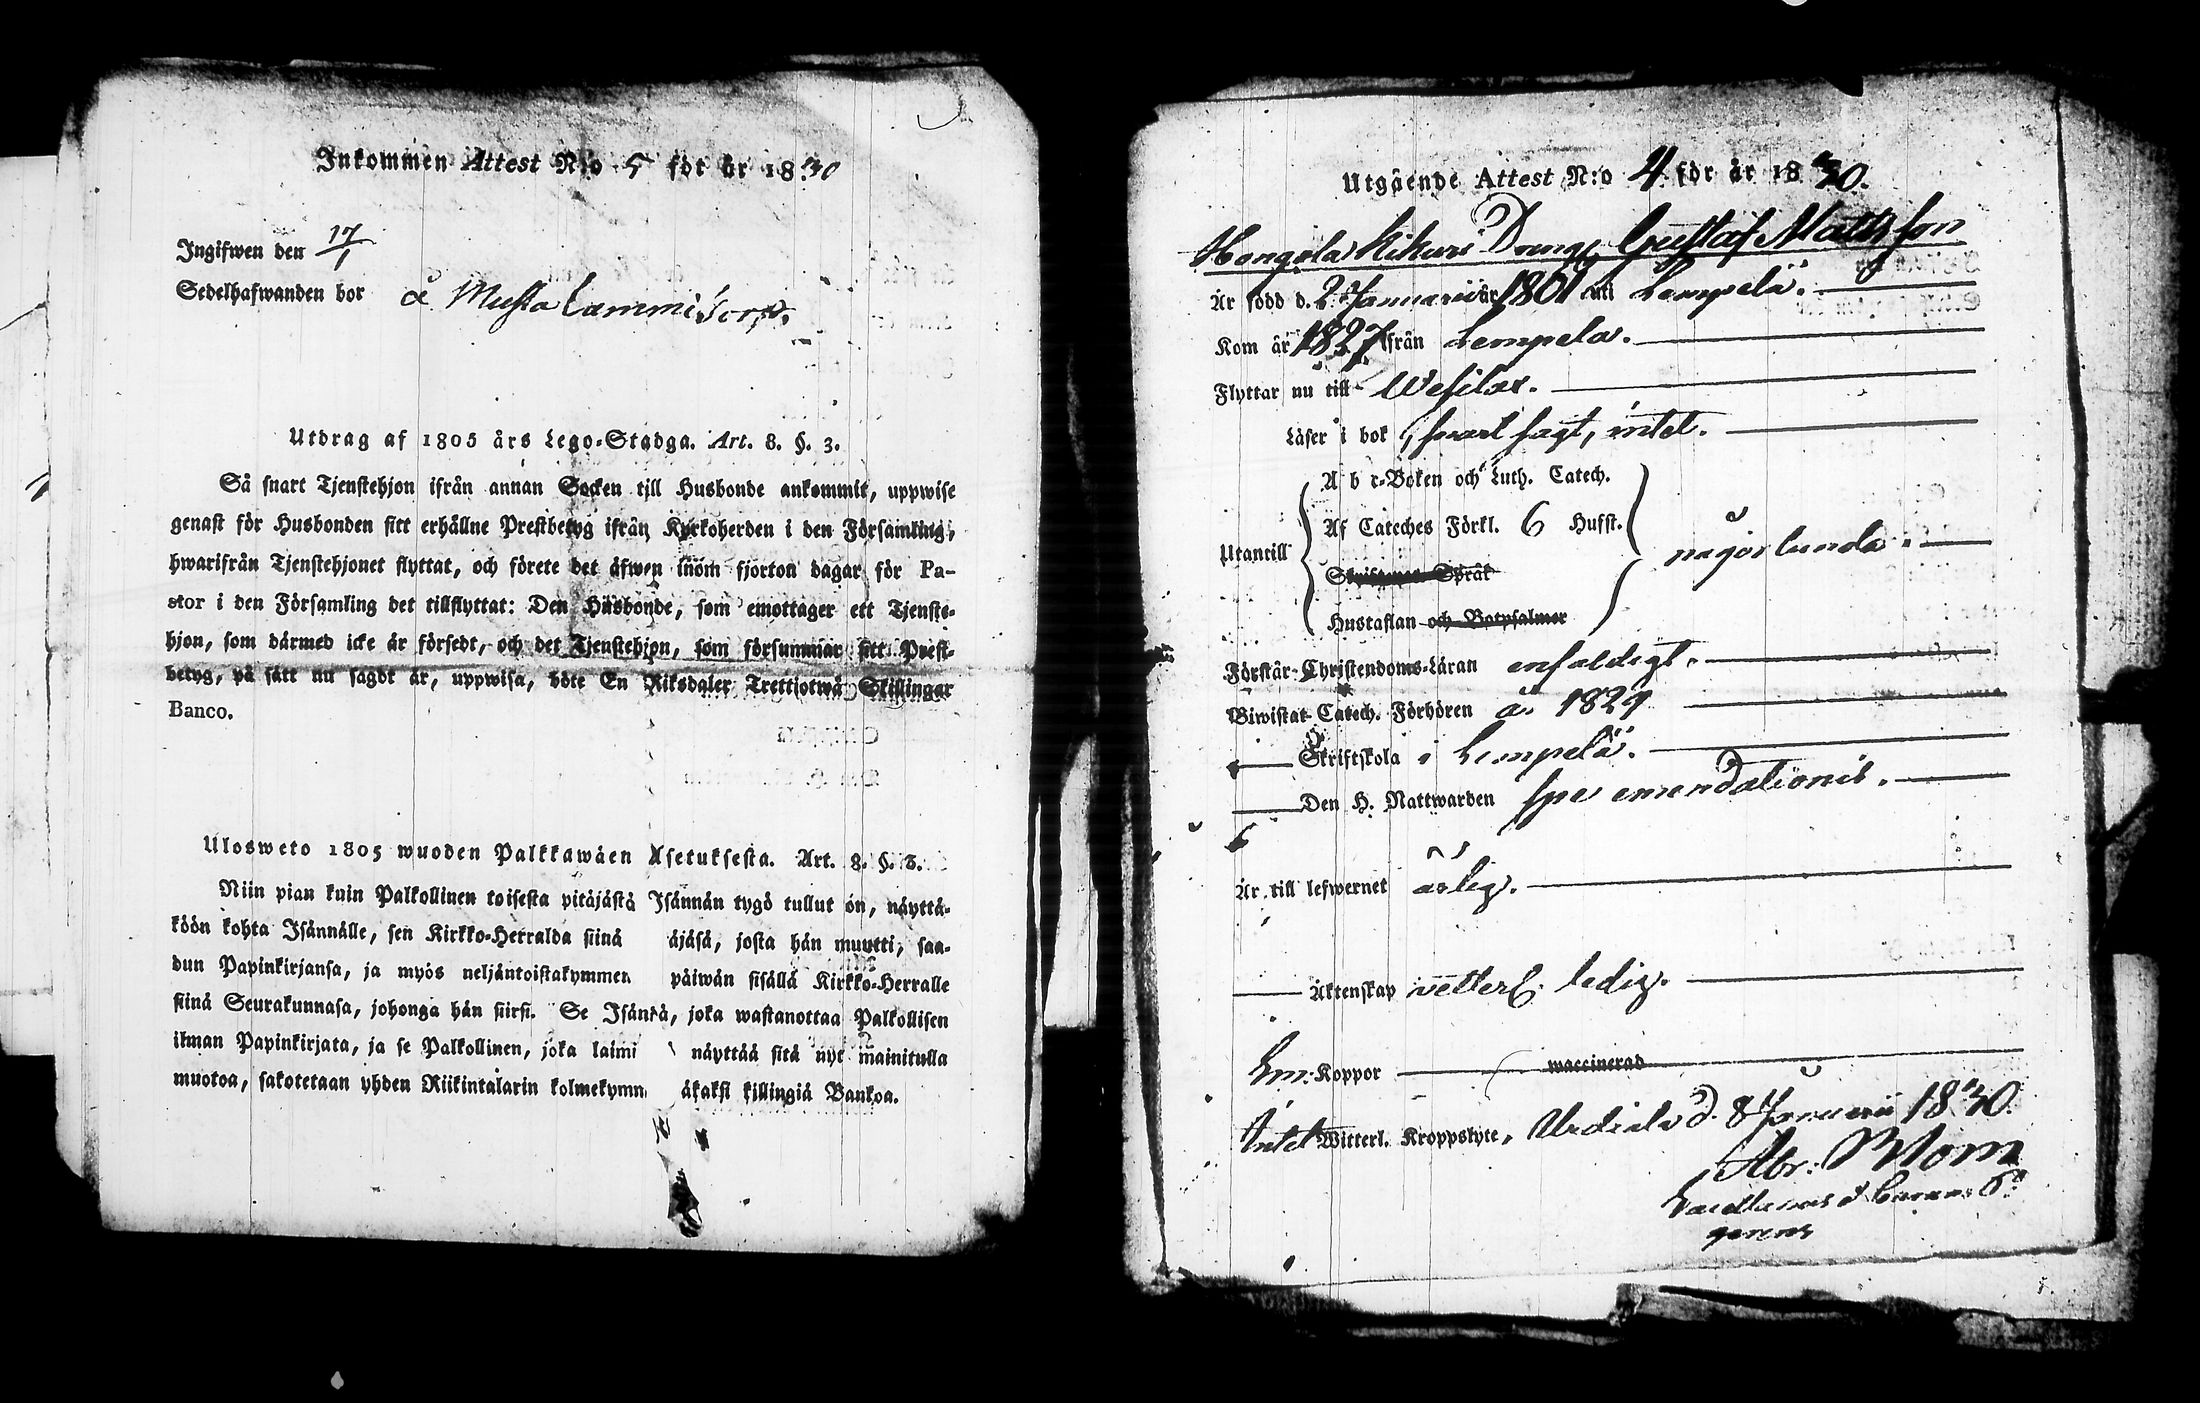 Inkommen Attest N:o 5 för år 1830
Ingifwen den 17/1
Sedelhafwanden bor å Musta Lammi Torp.
Utdrag af 1805 års Lego-Stadga. Art. 8. §. 3.
Så snart Tjenstehjon ifrån annan Socken till Husbonde ankommit, uppwise
genast för Husbonden sitt erhållne Prestbetyg ifrån Kyrkoherden i den Församling,
hwarifrån Tjenstehjonet flyttat, och förete det äfwen inom fjorton dagar för Pa-
stor i den Församling det tillflyttat: Den Husbonde, som emottager ett Tjenste-
hjon, som därmed icke är försedt, och det Tjenstehjon, som försummar sitt Prest-
betyg, på sätt nu sagdt är, uppwisa, böte En Riksdaler Trettiotwå Skillingar
Banco.
Ulosweto 1805 wuoden Palkkawäen Asetuksesta. Art. 8. §. 3.
Niin pian kuin Palkollinen toisesta pitäjästä Isännän tygö tullut on, näyttä-
köön kohta Isännälle, sen Kirkko-Herralda siinä äjäsä, josta hän muutti, saa-
dun Papinkirjansa, ja myös neljäntoistakymmen päiwän sisällä Kirkko-Herralle
siinä Seurakunnasa, johonga hän siirsi. Se Isäntä, joka wastanottaa Palkollisen
ilman Papinkirjata, ja se Palkollinen, joka laimi näyttää sitä nyt mainitulla
muotoa, sakotetaan yhden Riikintalarin kolmekymm äkaksi killingiä Bankoa.
Utgående Attest N:o 4 för år 1830.
Hongola Kihuri Dräng Gustaf Mattsson
Är född d. 2 Januarii år 1801 uti Lempelä.
Kom år 1827 från Lempelä.
Flyttar nu till Wesilax.
Läser i bok snart sagt, intet.
A b c-Boken och Luth. Catech.
Af Cateches Förkl. 6 Hufst.
Utantill någorlunda.
Skriftenes Språk
Hustaflan och Botpsalmer
Förstår Christendoms-Läran enfaldigt.
Biwistat Catech. Förhören år 1829
Skriftskola i Lempelä.
Den H. Nattwarden spe emendationis.
Är till lefwernet ärlig.
Äktenskap vetterl. ledig.
Koppor waccinerad
Intet Witterl. Kroppslyte, Urdiala d. 8 Januarii 1830.
Abr: Blom
gerens